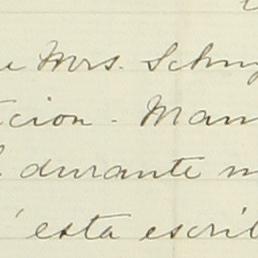 Mrs. Schuy
cion - Man
durante
esta escrib